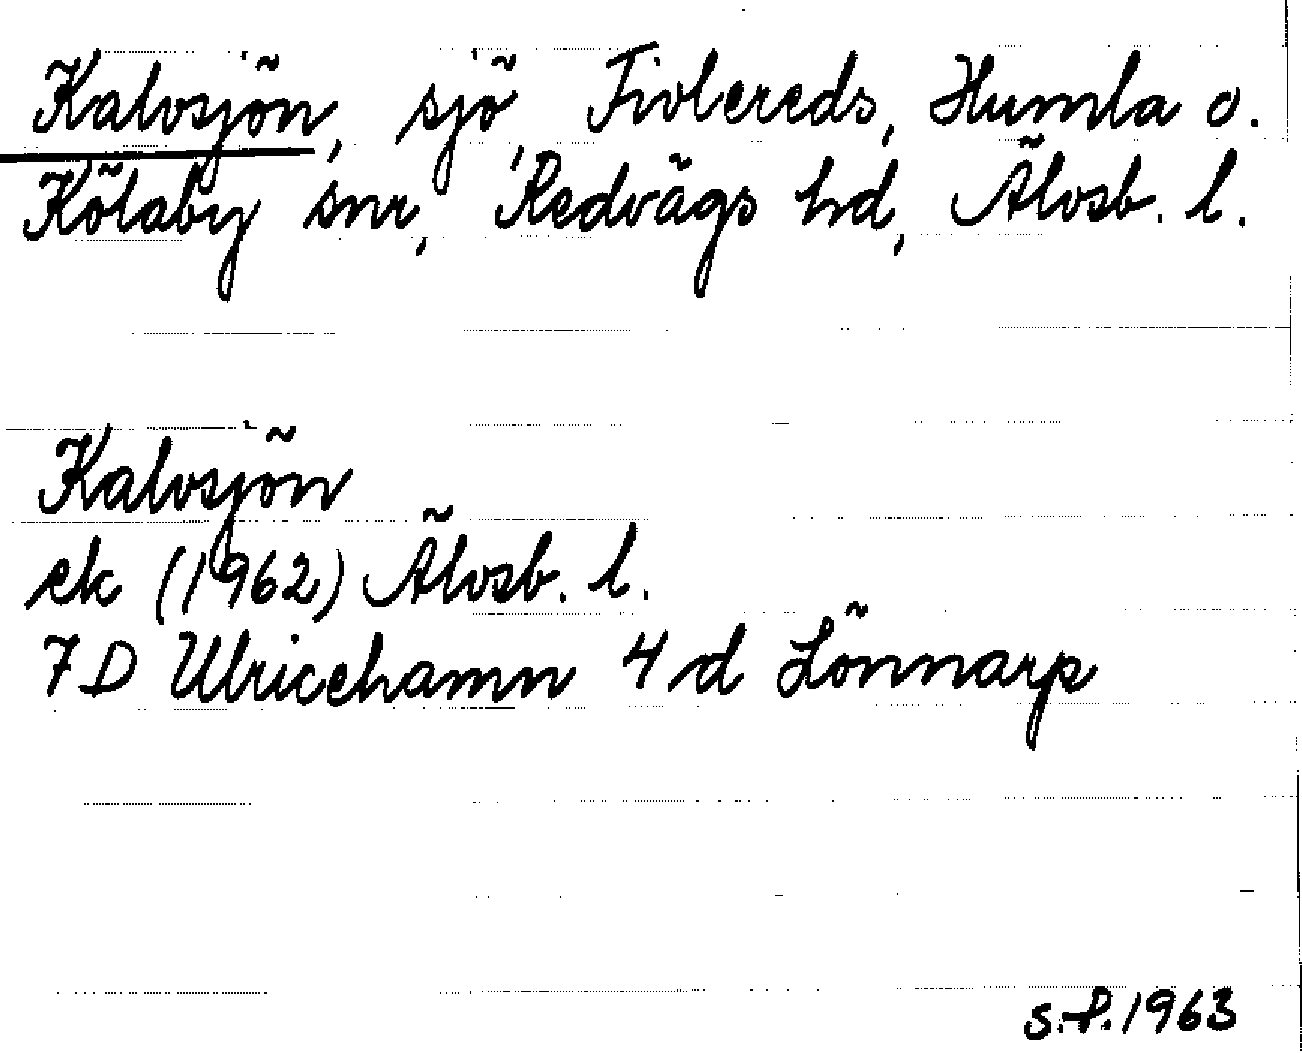 Kalvsjön, sjö, Tivlereds, Humla o.
Kölaby snr, Redvägs hd, Älvsb. l.
Kalvsjön
ek (1962) Älvsb. l.
7 D Ulricehamn 4 d Lönnarp
S.P. 1963